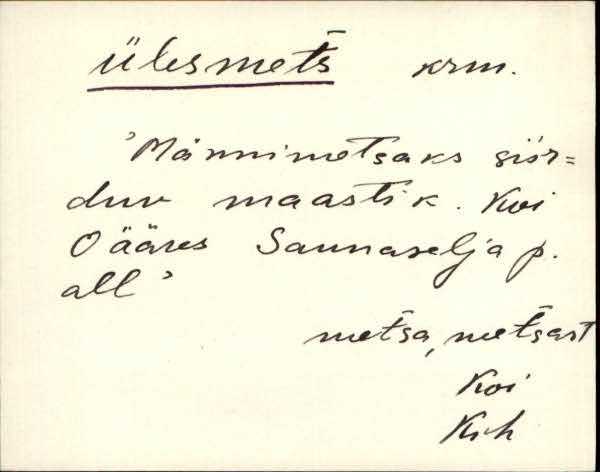 ülesmets krm.
'Männimetsaks siir=
duv maastik. Koi
O ääres Saunaselja p.
all'
metsa, metsast
Koi
Krh